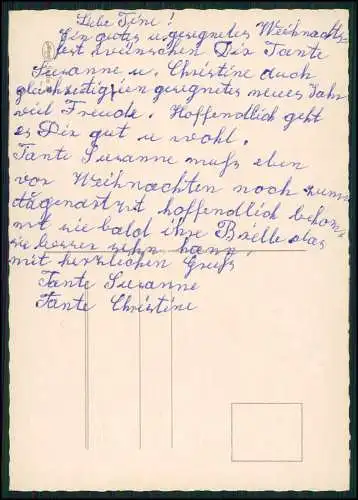 Liebe Tini!
Ein gutes u gesegnetes Weihnachts-
fest wünschen Dir Tante
Susanne u. Christine auch
gleichzeitig ein gesegnetes neues Jahr
viel Freude. Hoffendlich geht
es Dir gut u wohl.
Tante Susanne muß eben
vor Weihnachten noch zum
Augenartzt hoffendlich bekom-
mt sie bald ihre Brielle das
sie besser sehn kann,
mit herzlichen Gruß
Tante Susanne
Tante Christine